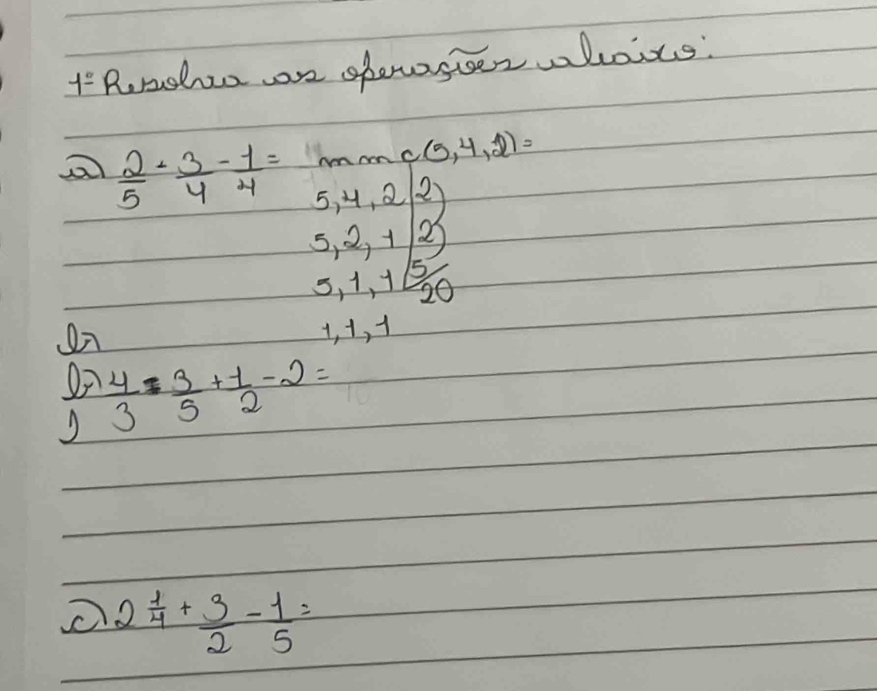 1º Resolva as operações abaixo:
a) 2/5 + 3/4 - 1/4 = mmc(5,4,2)=
5,4,2|2
5,2,1|2
5,1,1|5/20
1,1,1
b)
b) 4/3 - 3/5 + 1/2 - 2 =
c) 2 1/4 + 3/2 - 1/5 =